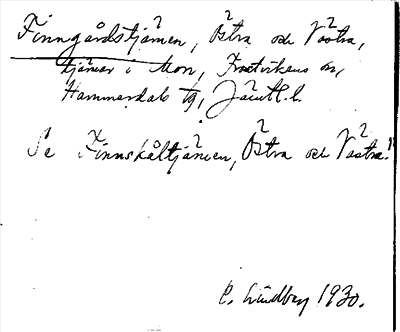 Finngårdstjärnen, Östra och Västra,
tjärnar i Mon, Frostvikens sn,
Hammerdals tg, Jämtl. l.
Se Finnskåltjärnen, Östra och Västra!
E. Lindberg 1930.